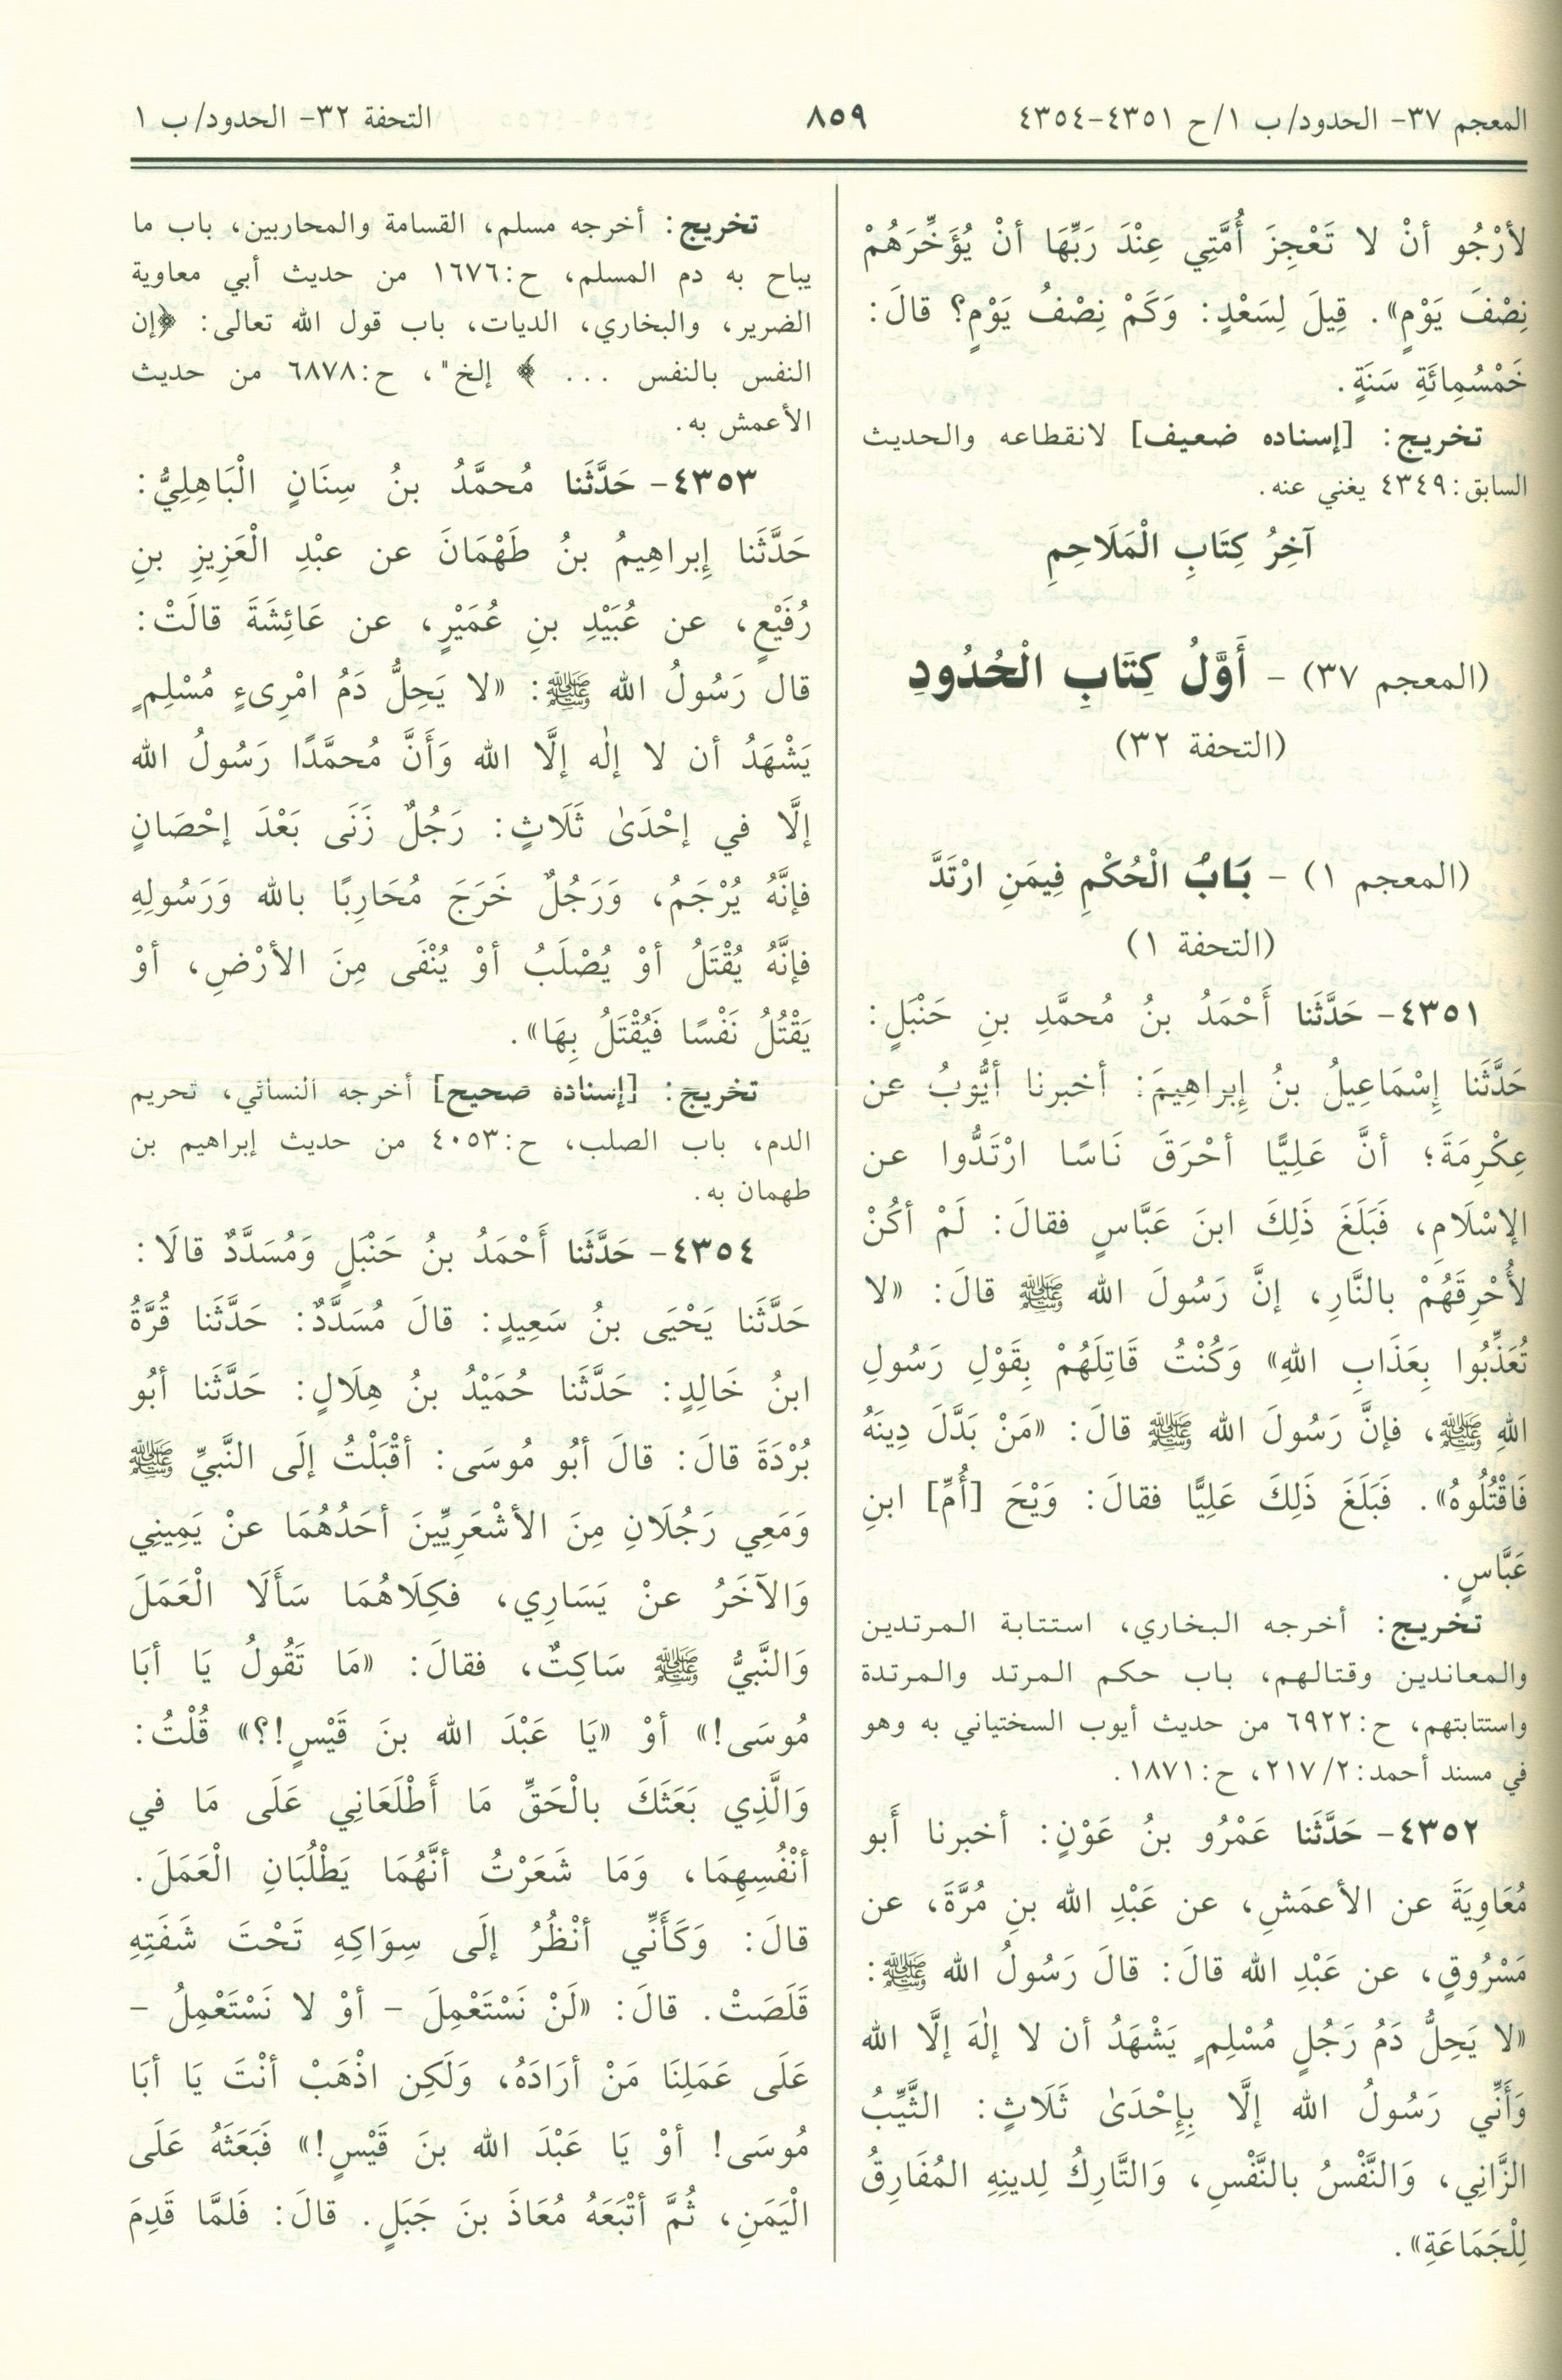 المعجم ٣٧- الحدود/ ب ١/ ح ٤٣٥١-٤٣٥٤
٨٥٩
التحفة ٣٢- الحدود/ ب ١
لأرْجُو أنْ لا تَعْجِزَ أُمَّتِي عِنْدَ رَبِّهَا أنْ يُؤَخِّرَهُمْ
نِصْفَ يَوْمٍ». قِيلَ لِسَعْدٍ: وَكَمْ نِصْفُ يَوْمٍ؟ قالَ:
خَمْسُمِائَةِ سَنَةٍ.
تخريج: [إسناده ضعيف] لانقطاعه والحديث
السابق:٤٣٤٩ يغني عنه.
آخِرُ كِتَابِ الْمَلَاحِمِ
(المعجم ٣٧) - أَوَّلُ كِتَابِ الْحُدُودِ
(التحفة ٣٢)
(المعجم ١) - بَابُ الْحُكْمِ فِيمَنِ ارْتَدَّ
(التحفة ١)
٤٣٥١- حَدَّثَنا أَحْمَدُ بنُ مُحمَّدِ بنِ حَنْبَلٍ:
حَدَّثَنا إِسْمَاعِيلُ بنُ إِبراهِيمَ: أخبرنا أيُّوبُ عن
عِكْرِمَةَ؛ أنَّ عَلِيًّا أحْرَقَ نَاسًا ارْتَدُّوا عن
الإسْلَامِ، فَبَلَغَ ذَلِكَ ابنَ عَبَّاسٍ فقالَ: لَمْ أكُنْ
لأُحْرِقَهُمْ بالنَّارِ، إنَّ رَسُولَ الله ﷺ قالَ: «لا
تُعَذِّبُوا بِعَذَابِ اللهِ» وَكُنْتُ قَاتِلَهُمْ بِقَوْلِ رَسُولِ
اللهِ ﷺ، فإنَّ رَسُولَ الله ﷺ قالَ: «مَنْ بَدَّلَ دِينَهُ
فَاقْتُلُوهُ». فَبَلَغَ ذَلِكَ عَلِيًّا فقالَ: وَيْحَ [أُمِّ] ابنِ
عَبَّاسٍ.
تخريج: أخرجه البخاري، استتابة المرتدين
والمعاندين وقتالهم، باب حكم المرتد والمرتدة
واستتابتهم، ح:٦٩٢٢ من حديث أيوب السختياني به وهو
في مسند أحمد:٢١٧/٢، ح:١٨٧١.
٤٣٥٢- حَدَّثَنا عَمْرُو بنُ عَوْنٍ: أخبرنا أَبو
مُعَاوِيَةَ عن الأعمَشِ، عن عَبْدِ الله بنِ مُرَّةَ، عن
مَسْرُوقٍ، عن عَبْدِ الله قالَ: قالَ رَسُولُ الله ﷺ:
«لا يَحِلُّ دَمُ رَجُلٍ مُسْلِمٍ يَشْهَدُ أن لا إلٰهَ إلَّا الله
وَأَنِّي رَسُولُ الله إلَّا بِإِحْدَىٰ ثَلَاثٍ: الثَّيِّبُ
الزَّانِي، وَالنَّفْسُ بالنَّفْسِ، وَالتَّارِكُ لِدينِهِ المُفَارِقُ
لِلْجَمَاعَةِ».
تخريج: أخرجه مسلم، القسامة والمحاربين، باب ما
يباح به دم المسلم، ح:١٦٧٦ من حديث أبي معاوية
الضرير، والبخاري، الديات، باب قول الله تعالى: ﴿إن
النفس بالنفس ... ﴾ إلخ"، ح:٦٨٧٨ من حديث
الأعمش به.
٤٣٥٣- حَدَّثَنا مُحمَّدُ بنُ سِنَانٍ الْبَاهِلِيُّ:
حَدَّثَنا إِبراهِيمُ بنُ طَهْمَانَ عن عبْدِ الْعَزِيزِ بنِ
رُفَيْعٍ، عن عُبَيْدِ بنِ عُمَيْرٍ، عن عَائِشَةَ قالَتْ:
قال رَسُولُ الله ﷺ: «لا يَحِلُّ دَمُ امْرِىءٍ مُسْلِمٍ
يَشْهَدُ أن لا إلٰه إلَّا الله وَأَنَّ مُحمَّدًا رَسُولُ الله
إلَّا في إحْدَىٰ ثَلَاثٍ: رَجُلٌ زَنَى بَعْدَ إحْصَانٍ
فإنَّهُ يُرْجَمُ، وَرَجُلٌ خَرَجَ مُحَارِبًا بالله وَرَسُولِهِ
فإنَّهُ يُقْتَلُ أوْ يُصْلَبُ أوْ يُنْفَى مِنَ الأرْضِ، أوْ
يَقْتُلُ نَفْسًا فَيُقْتَلُ بِهَا».
تخريج: [إسناده صحيح] أخرجه النسائي، تحريم
الدم، باب الصلب، ح:٤٠٥٣ من حديث إبراهيم بن
طهمان به.
٤٣٥٤- حَدَّثَنا أَحْمَدُ بنُ حَنْبَلٍ وَمُسَدَّدٌ قالَا:
حَدَّثَنا يَحْيَى بنُ سَعِيدٍ: قالَ مُسَدَّدٌ: حَدَّثَنا قُرَّةُ
ابنُ خَالِدٍ: حَدَّثَنا حُمَيْدُ بنُ هِلَالٍ: حَدَّثَنا أبُو
بُرْدَةَ قالَ: قالَ أبُو مُوسَى: أقْبَلْتُ إلَى النَّبيِّ ﷺ
وَمَعِي رَجُلَانِ مِنَ الأشْعَرِيِّينَ أحَدُهُمَا عنْ يَمِينِي
وَالآخَرُ عنْ يَسَارِي، فكِلَاهُمَا سَأَلَا الْعَمَلَ
وَالنَّبيُّ ﷺ سَاكِتٌ، فقالَ: «مَا تَقُولُ يَا أبَا
مُوسَى!» أوْ «يَا عَبْدَ الله بنَ قَيْسٍ!؟» قُلْتُ:
وَالَّذِي بَعَثَكَ بالْحَقِّ مَا أَطْلَعَانِي عَلَى مَا في
أنْفُسِهِمَا، وَمَا شَعَرْتُ أنَّهُمَا يَطْلُبَانِ الْعَمَلَ.
قالَ: وَكَأَنِّي أنْظُرُ إلَى سِوَاكِهِ تَحْتَ شَفَتِهِ
قَلَصَتْ. قالَ: «لَنْ نَسْتَعْمِلَ - أوْ لا نَسْتَعْمِلُ -
عَلَى عَمَلِنَا مَنْ أرَادَهُ، وَلَكِن اذْهَبْ أنْتَ يَا أبَا
مُوسَى! أوْ يَا عَبْدَ الله بنَ قَيْسٍ!» فَبَعَثَهُ عَلَى
الْيَمَنِ، ثُمَّ أتْبَعَهُ مُعَاذَ بنَ جَبَلٍ. قالَ: فَلمَّا قَدِمَ